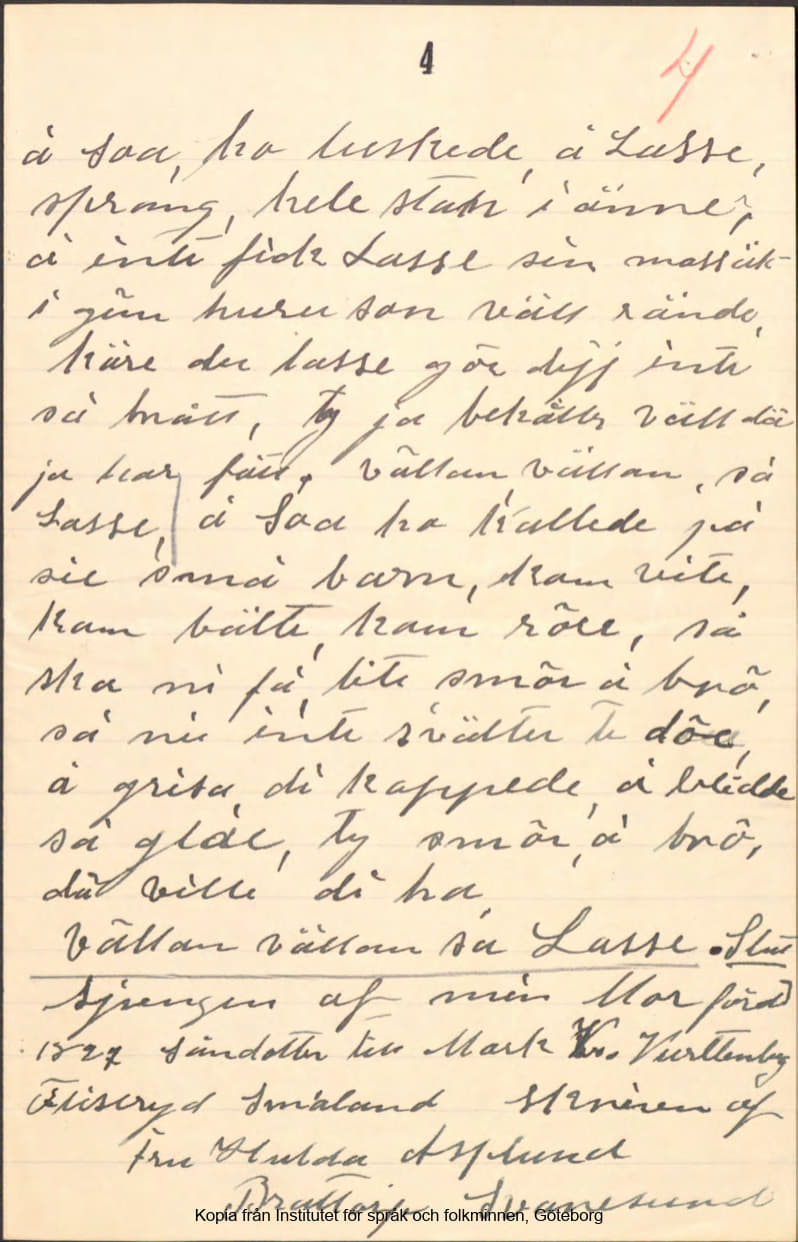 4
4
å Soa, ho luskede, å Lasse,
sprang, hele stak i änne,
å inte fick Lasse sin massäk
i gön huru son väll rände,
käre du lasse gör dijj inte
så brått, ty ja behåller väll dä
ja har fått, vällan vällan, så
Lasse, å Soa ho kallede på
sie små barn, kom vite,
kom bälte, kom röe, så
ska ni få lite smör å brö,
så nie inte svälter te döe,
å grisa di hoppede, å bledde
så glae, ty smör å brö,
dä ville di ha,
Vällan vällan sa Lasse. Slut
Sjungen af min Mor född
1827 Sondotter till Mark
Fliseryd Småland Skriven af
Fru Hulda Asplund
Svanesund
Kopia från Institutet för språk och folkminnen, Göteborg